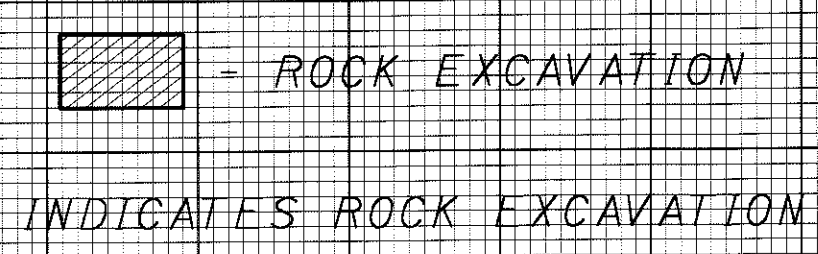 - ROCK EXCAVATION
INDICATES ROCK EXCAVATION